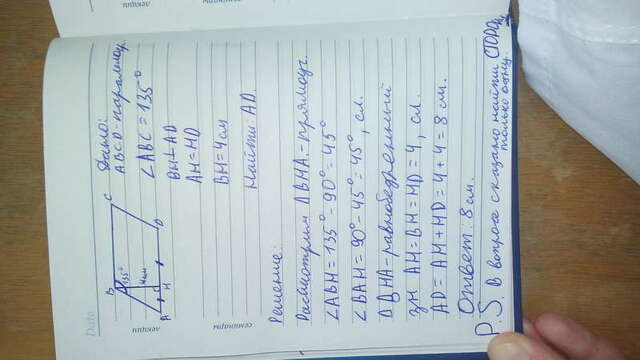 Date
лекции
семинары
B
C
135°
4 см
A
H
D
Дано:
ABCD - параллелогр.
∠ABC = 135°
BH ⊥ AD
AH = HD
BH = 4 см
Найти: AD.
Решение:
Рассмотрим △BHA. - прямоуг.
∠ABH = 135° - 90° = 45°
∠BAH = 90° - 45° = 45°, сл.
△BHA - равнобедренный
зн AH = BH = HD = 4, сл.
AD = AH + HD = 4 + 4 = 8 см.
Ответ: 8 см.
P.S. В вопросе сказано найти СТОРОНУ
только одну.